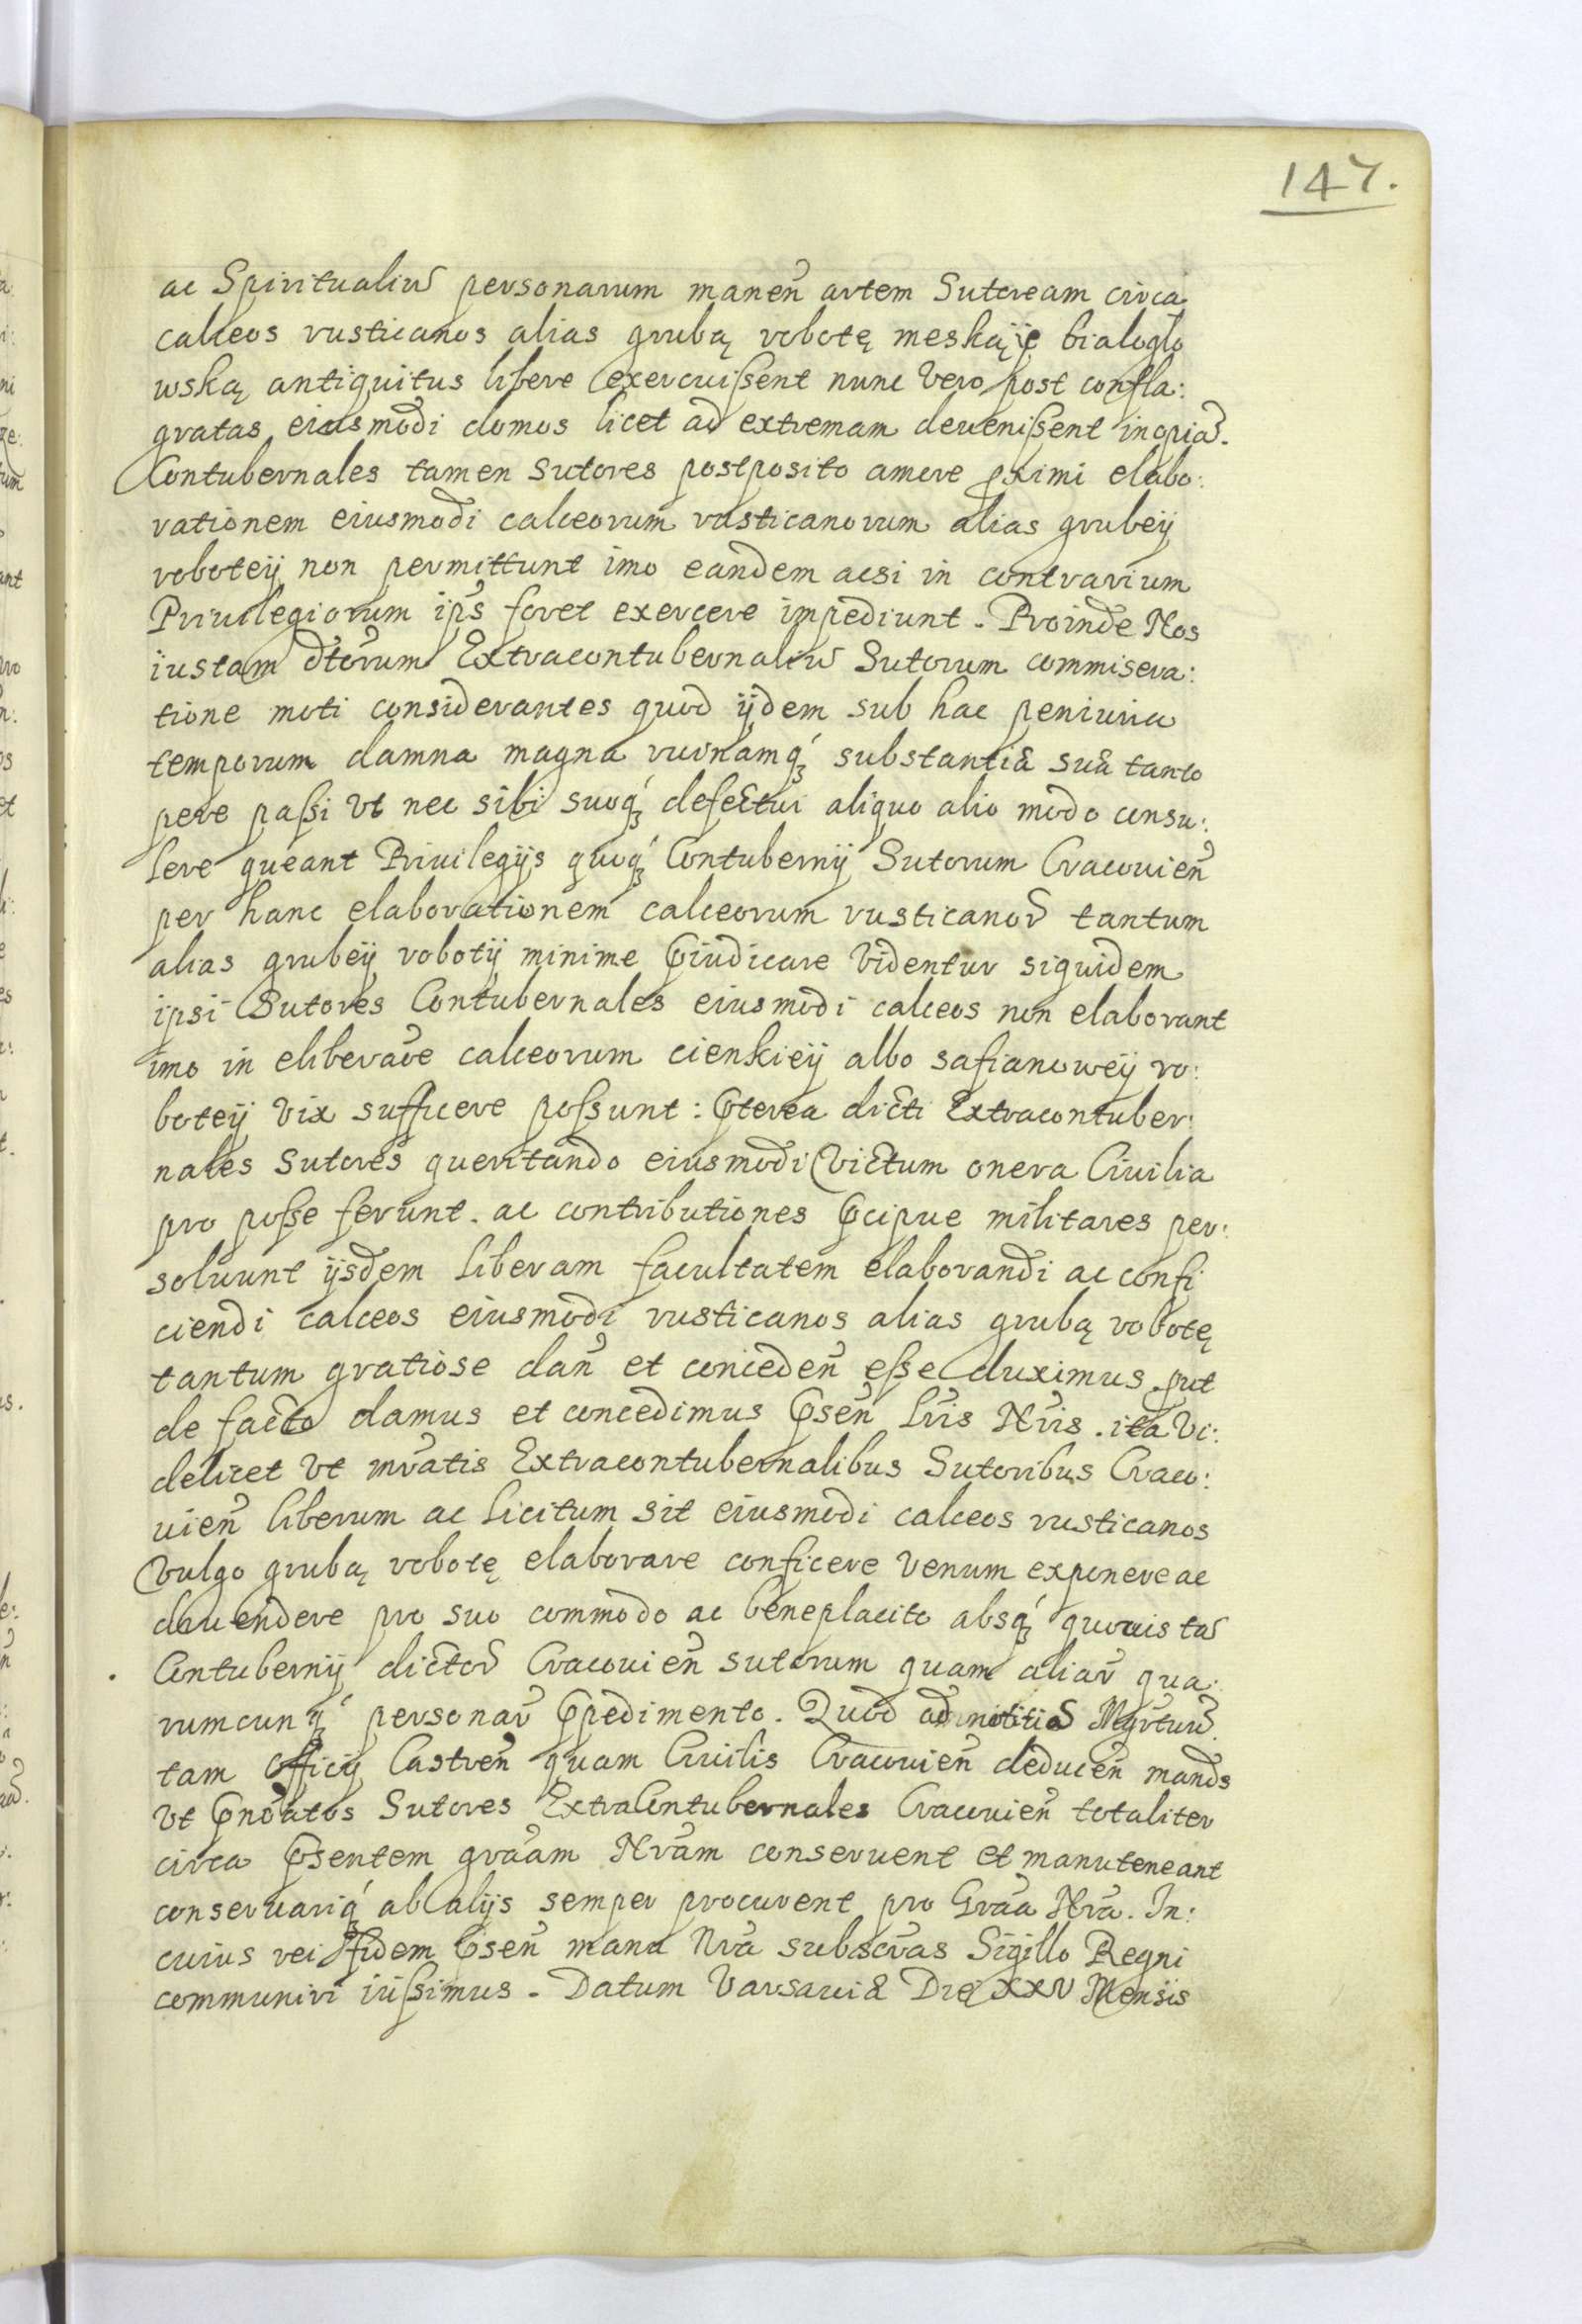 147.
ac Spiritualiu᷈ personarum manen᷈ artem Sutoream circa
calceos rusticanos alias grubą robotę meską je białogło
wską antiquitus libere exercuißent nunc Vero post confla:
gratas eiusmodi domos licet ad extremam deuenißent inopia᷈.
Contubernales tamen Sutores postposito amore pximi elabo:
rationem eiusmodi calceorum rusticanorum alias grubeÿ
roboteÿ non permittunt imo eandem acsi in contrarium
Priuilegiorum ips᷈ foret exercere impediunt. Proinde Nos
iustam dto᷈rum Extracontubernaliu᷈ Sutorum commisera:
tione moti considerantes quod ijdem sub hac penuria
temporum damna magna ruinamq́ȝ substantiæ suæ tanto
pere paßi Vt nec sibi suoq́ȝ defectui aliquo alio modo consu:
lere queant Priuilegijs quoq́ȝ Contubernij Sutorum Cracouien᷈
per hanc elaborationem calceorum rusticano᷈r tantum
alias grubeÿ robotÿ minime p̄iudicare Videntur siquidem
ipsi Sutores Contubernales eiusmodi calceos non elaborant
imo in elibera᷈oe calceorum cienkieÿ albo safianoweÿ ro:
boteÿ Vix sufficere poßunt: p̄terea dicti Extracontuber:
nales Sutores queritando eiusmodi Victum onera Ciuilia
pro poße ferunt. ac contributiones p̄cipue militares per:
soluunt ijsdem liberam facultatem elaborandi ac confi
ciendi calceos eiusmodi rusticanos alias grubą robotę
tantum gratiose dan᷈ et conceden᷈ eße duximus. put
de facto damus et concedimus p̄sen᷈ Lr᷈is Nr᷈is. ita Vi:
delicet Vt mra᷈tis Extracontubernalibus Sutoribus Craco:
uien᷈ liberum ac licitum sit eiusmodi calceos rusticanos
Vulgo grubą robotę elaborare conficere Venum exponere ac
diuendere pro suo commodo ac beneplacito absq́ȝ quouis ta᷈
Contubernij dicto᷈r Cracouien᷈ sutorum quam alia᷈r qua:
rumcunq́ȝ persona᷈r p̄pedimento. Quod ad notitia᷈ Mgr᷈tuu᷈
tam Officij Castren᷈ quam Ciuilis Cracouien᷈ deducen᷈ mand᷈s
Vt p̄no᷈atos Sutores ExtraContubernales Cracouien᷈ totaliter
circa p̄sentem gra᷈am Nr᷈am conseruent et manuteneant
conseruariq́ȝ ab alijs semper procurent pro Gra᷈a Nr᷈a. In:
cuius rei fidem p̄sen᷈ manu Nr᷈a subscr᷈as Sigillo Regni
communiri iußimus. Datum Varsauiæ Die XXV Mensis